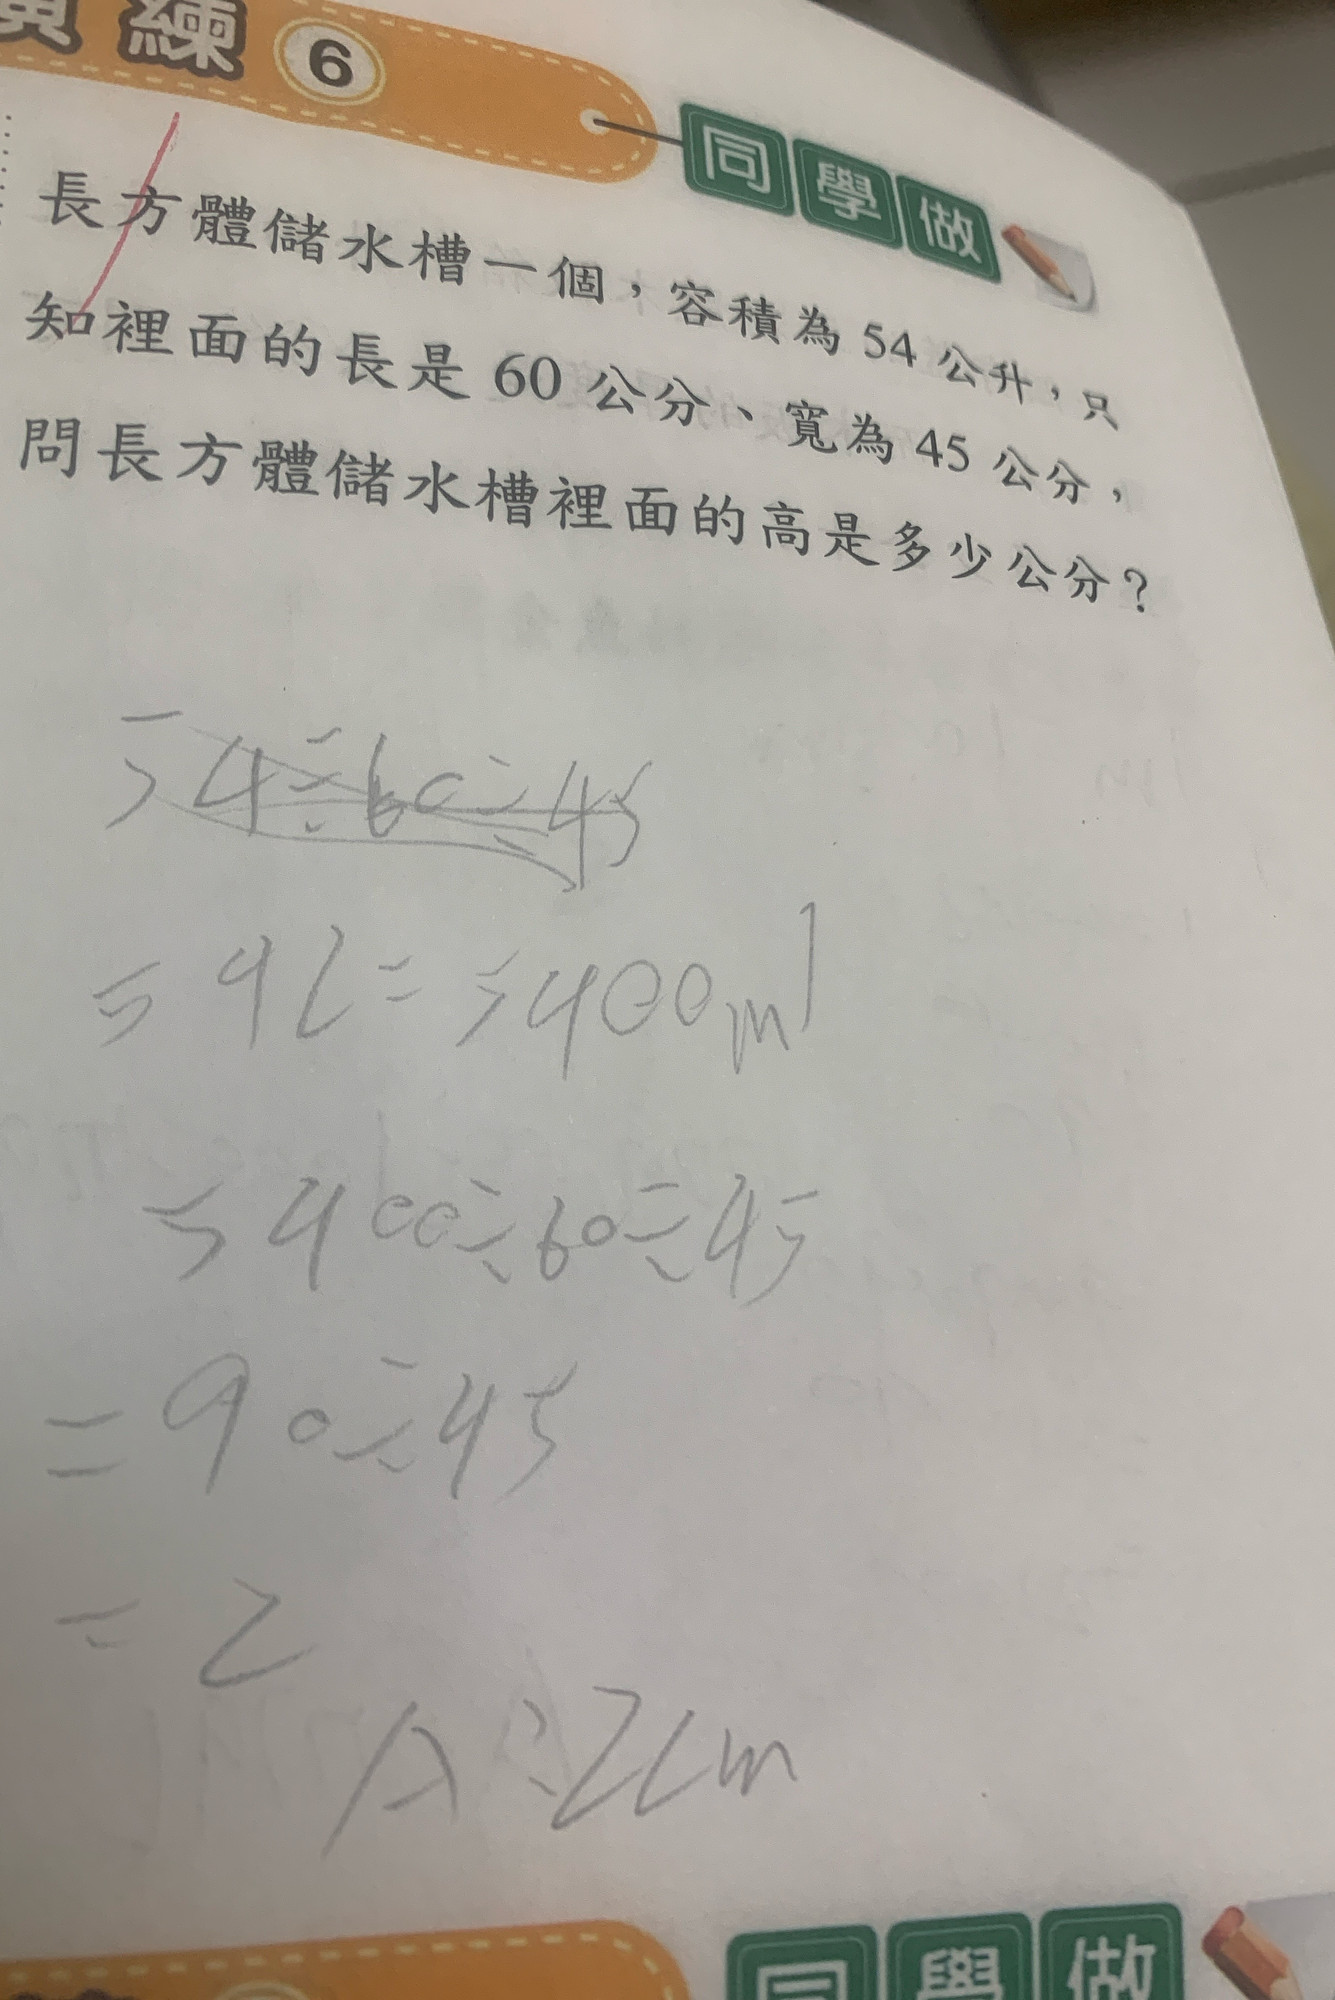 演練 6
同學做
長方體儲水槽一個，容積為 54 公升，只
知裡面的長是 60 公分、寬為 45 公分，
問長方體儲水槽裡面的高是多少公分？
54÷60÷45
54L=5400ml
5400÷60÷45
=90÷45
=2
A:2cm
同學做